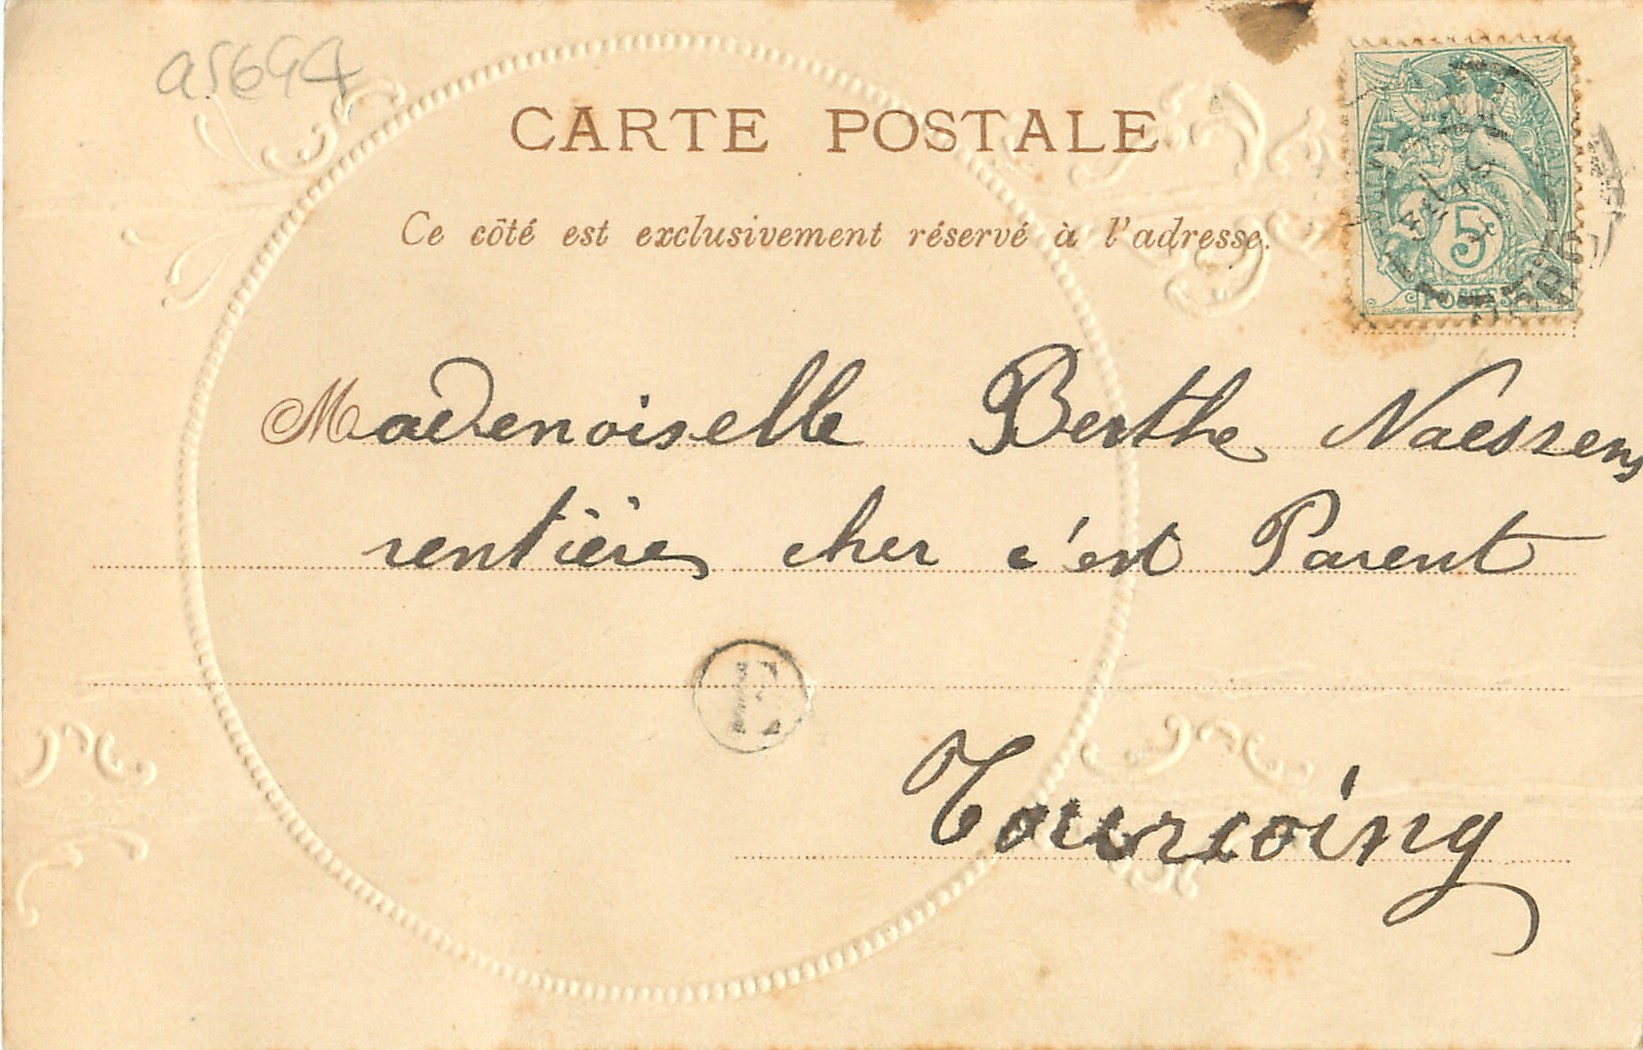 a5694
CARTE POSTALE
Ce côté est exclusivement réservé à l'adresse.
5
POSTES
Mademoiselle Berthe Naessens
rentière cher c'est Parent
E
Tourcoing